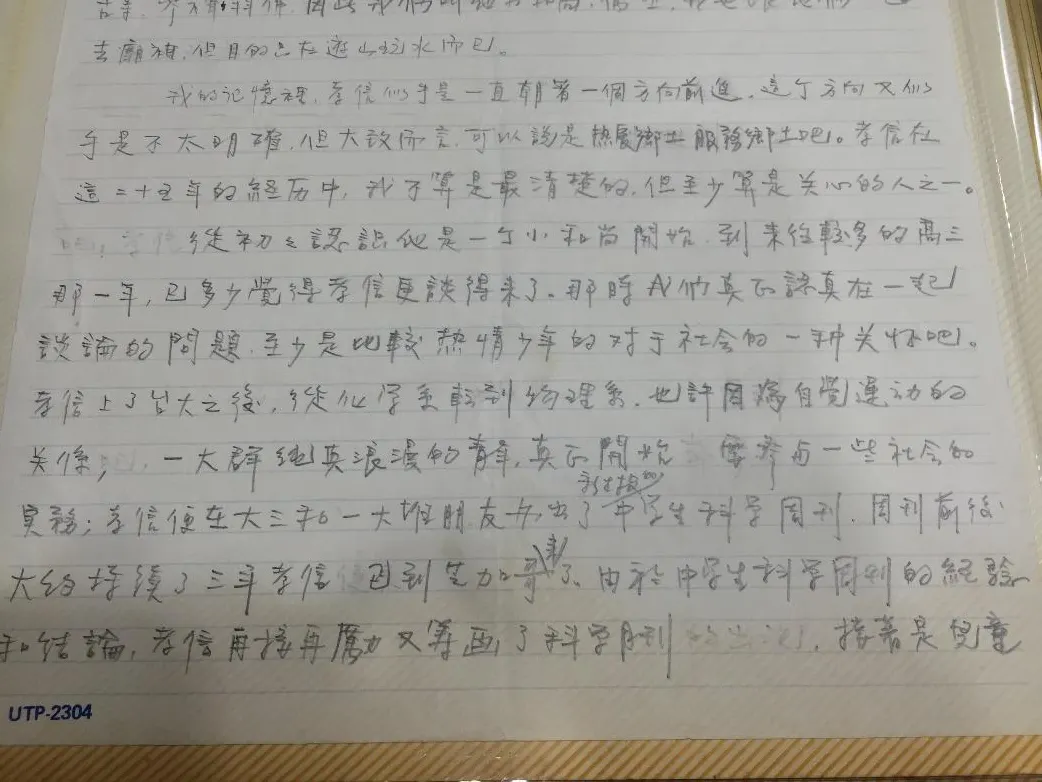 去廟裡,但目的只在遊山玩水而已。
我的記憶裡,孝信似乎是一直朝著一個方向前進,這个方向又似
乎是不太明確,但大致而言,可以說是热爱鄉土服務鄉土吧。孝信在
這二十五年的經历中,我不算是最清楚的,但至少算是关心的人之一。
從初二認識他是一个小和尚開始,到來往較多的高三
那一年,已多少覺得孝信更談得來了。那時我们真正認真在一起
談論的問題,至少是比較热情少年的对于社会的一种关怀吧。
孝信上了台大之後,從化学系転到物理系,也許因為自覺運动的
关係,一大群純真浪漫的青年,真正開始 参与一些社会的
實務;孝信便在大三和一大堆朋友办出了中学生科学周刊,周刊前後
新生報的
大约持續了三年孝信已到芝加哥去了、由於中学生科学周刊的經驗
和結論,孝信再接再厲又筹画了科学月刊,接著是兒童
UTP-2304